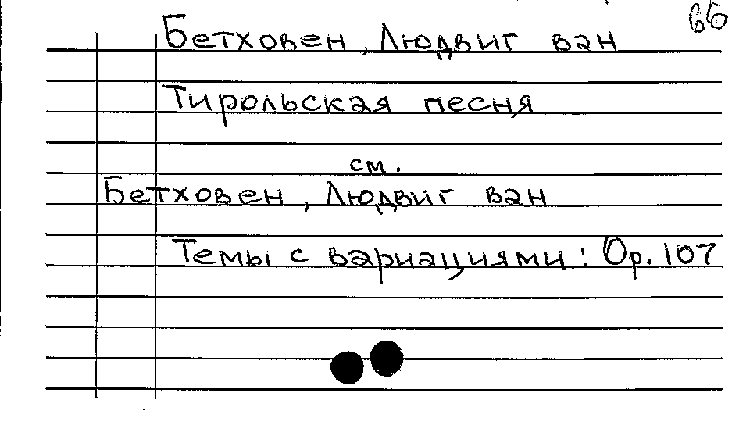 66
Бетховен, Людвиг ван
Тирольская песня
см.
Бетховен, Людвиг ван
Темы с вариациями: Op. 107